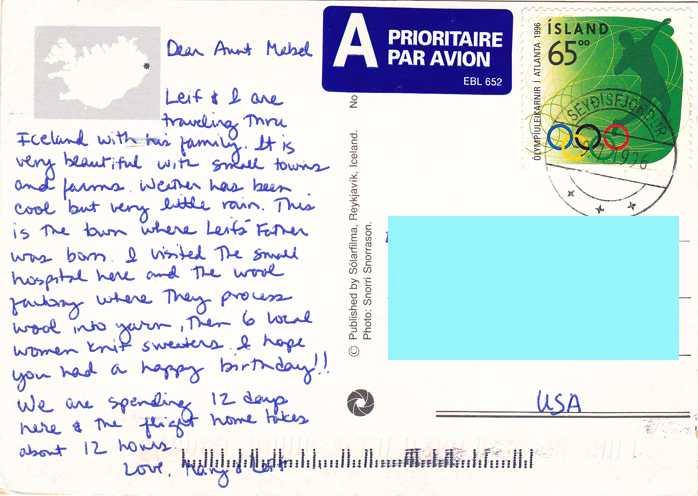 Dear Aunt Mabel
Leif & I are
traveling thru
Iceland with his family. It is
very beautiful with small towns
and farms. Weather has been
cool but very little rain. This
is the town where Leifs' Father
was born. I visited the small
hospital here and the wool
factory where they process
wool into yarn, then 6 local
women knit sweaters. I hope
you had a happy birthday!!
We are spending 12 days
here & the flight home takes
about 12 hours.
Love, Mary & Leif
A PRIORITAIRE
PAR AVION
EBL 652
ÍSLAND
65⁰⁰
ÓLYMPÍULEIKARNIR Í ATLANTA 1996
SEYÐISFJÖRÐUR
1996
No
© Published by Sólarfilma, Reykjavík, Iceland.
Photo: Snorri Snorrason.
USA